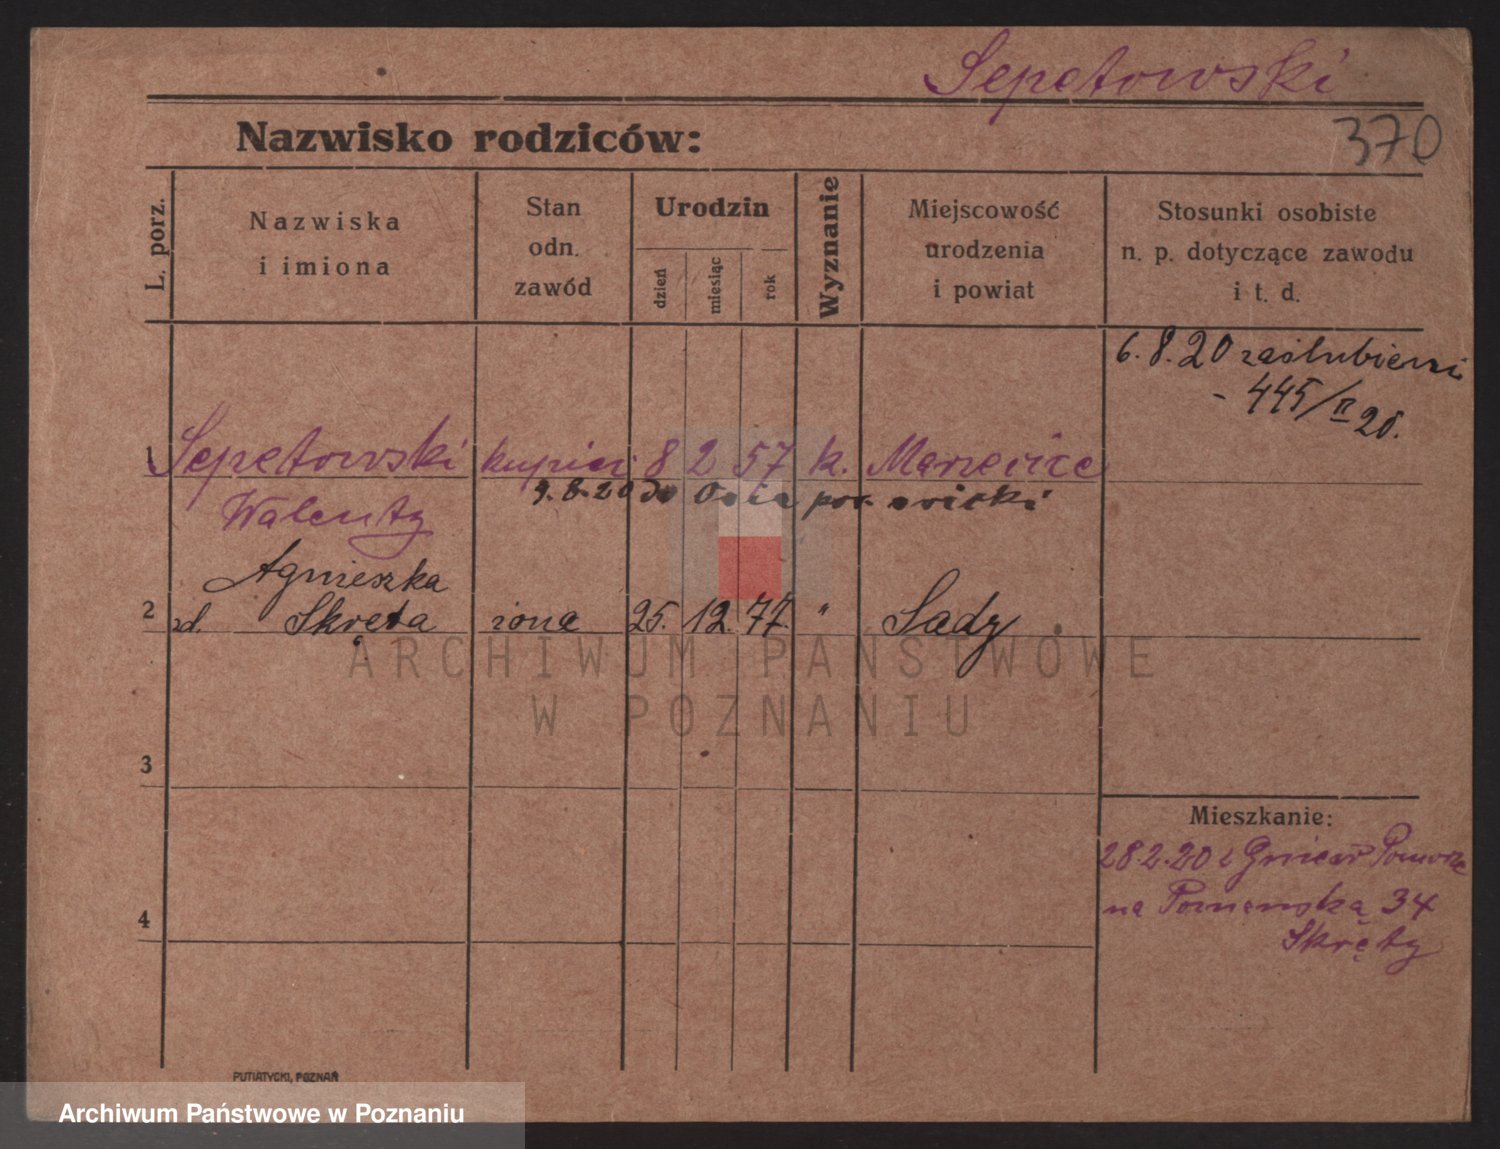 Sepetowski
370
Nazwisko rodziców:
L. porz.
Nazwiska
i imiona
Stan
odn.
zawód
Urodzin
dzień
miesiąc
rok
Wyznanie
Miejscowość
urodzenia
i powiat
Stosunki osobiste
n. p. dotyczące zawodu
i t. d.
6.8.20 zaślubieni
- 445/II 20.
1 Sepetowski kupiec 8 2 57 k.
9.8.20 do
Walenty
Agnieszka
2 zd. Skręta żona 25. 12. 77. " Sady
3
4
Mieszkanie:
28.2.20 z Gniew Pomorze
na Poznańską 34
Skręty
PUTIATYCKI, POZNAŃ
ARCHIWUM PAŃSTWOWE
W POZNANIU
Archiwum Państwowe w Poznaniu